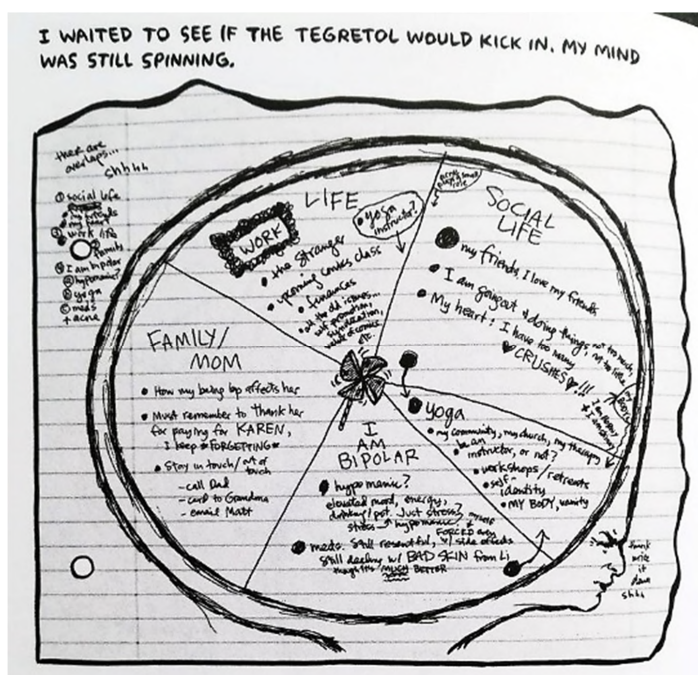 I WAITED TO SEE IF THE TEGRETOL WOULD KICK IN. MY MIND
WAS STILL SPINNING.
there are
overlaps...
shhhh
① social life
my heart
③ work life
family
④ I am bipolar
ⓐ hypomanic?
ⓑ yoga
ⓒ meds
+ acne
LIFE
WORK
yoga
instructor?
• the Stranger
• upcoming comics class
• finances
• all the old issues...
self promotion,
syndication,
value of comics
etc.
SOCIAL
LIFE
my friends, I love my friends
• I am going out & doing things, not too much,
not too little
• My heart, I have too many
CRUSHES!!!
FAMILY/
MOM
• How my being bp affects her
• Must remember to thank her
for paying for KAREN,
I keep *FORGETTING*
• Stay in touch/out of
touch
- call Dad
- card to Grandma
- email Matt
yoga
• my community, my church, my therapy
• be an
instructor, or not?
• workshops/retreats
• self-
identity
• MY BODY, vanity
I
AM
BIPOLAR
hypomanic?
elevated mood, energy,
drinking/pot. Just stress?
stress → hypomanic
meds. Still resentful, w/ side effects
Still dealing w/ BAD SKIN from Li
though it's MUCH BETTER
think
write
it
down
shhh